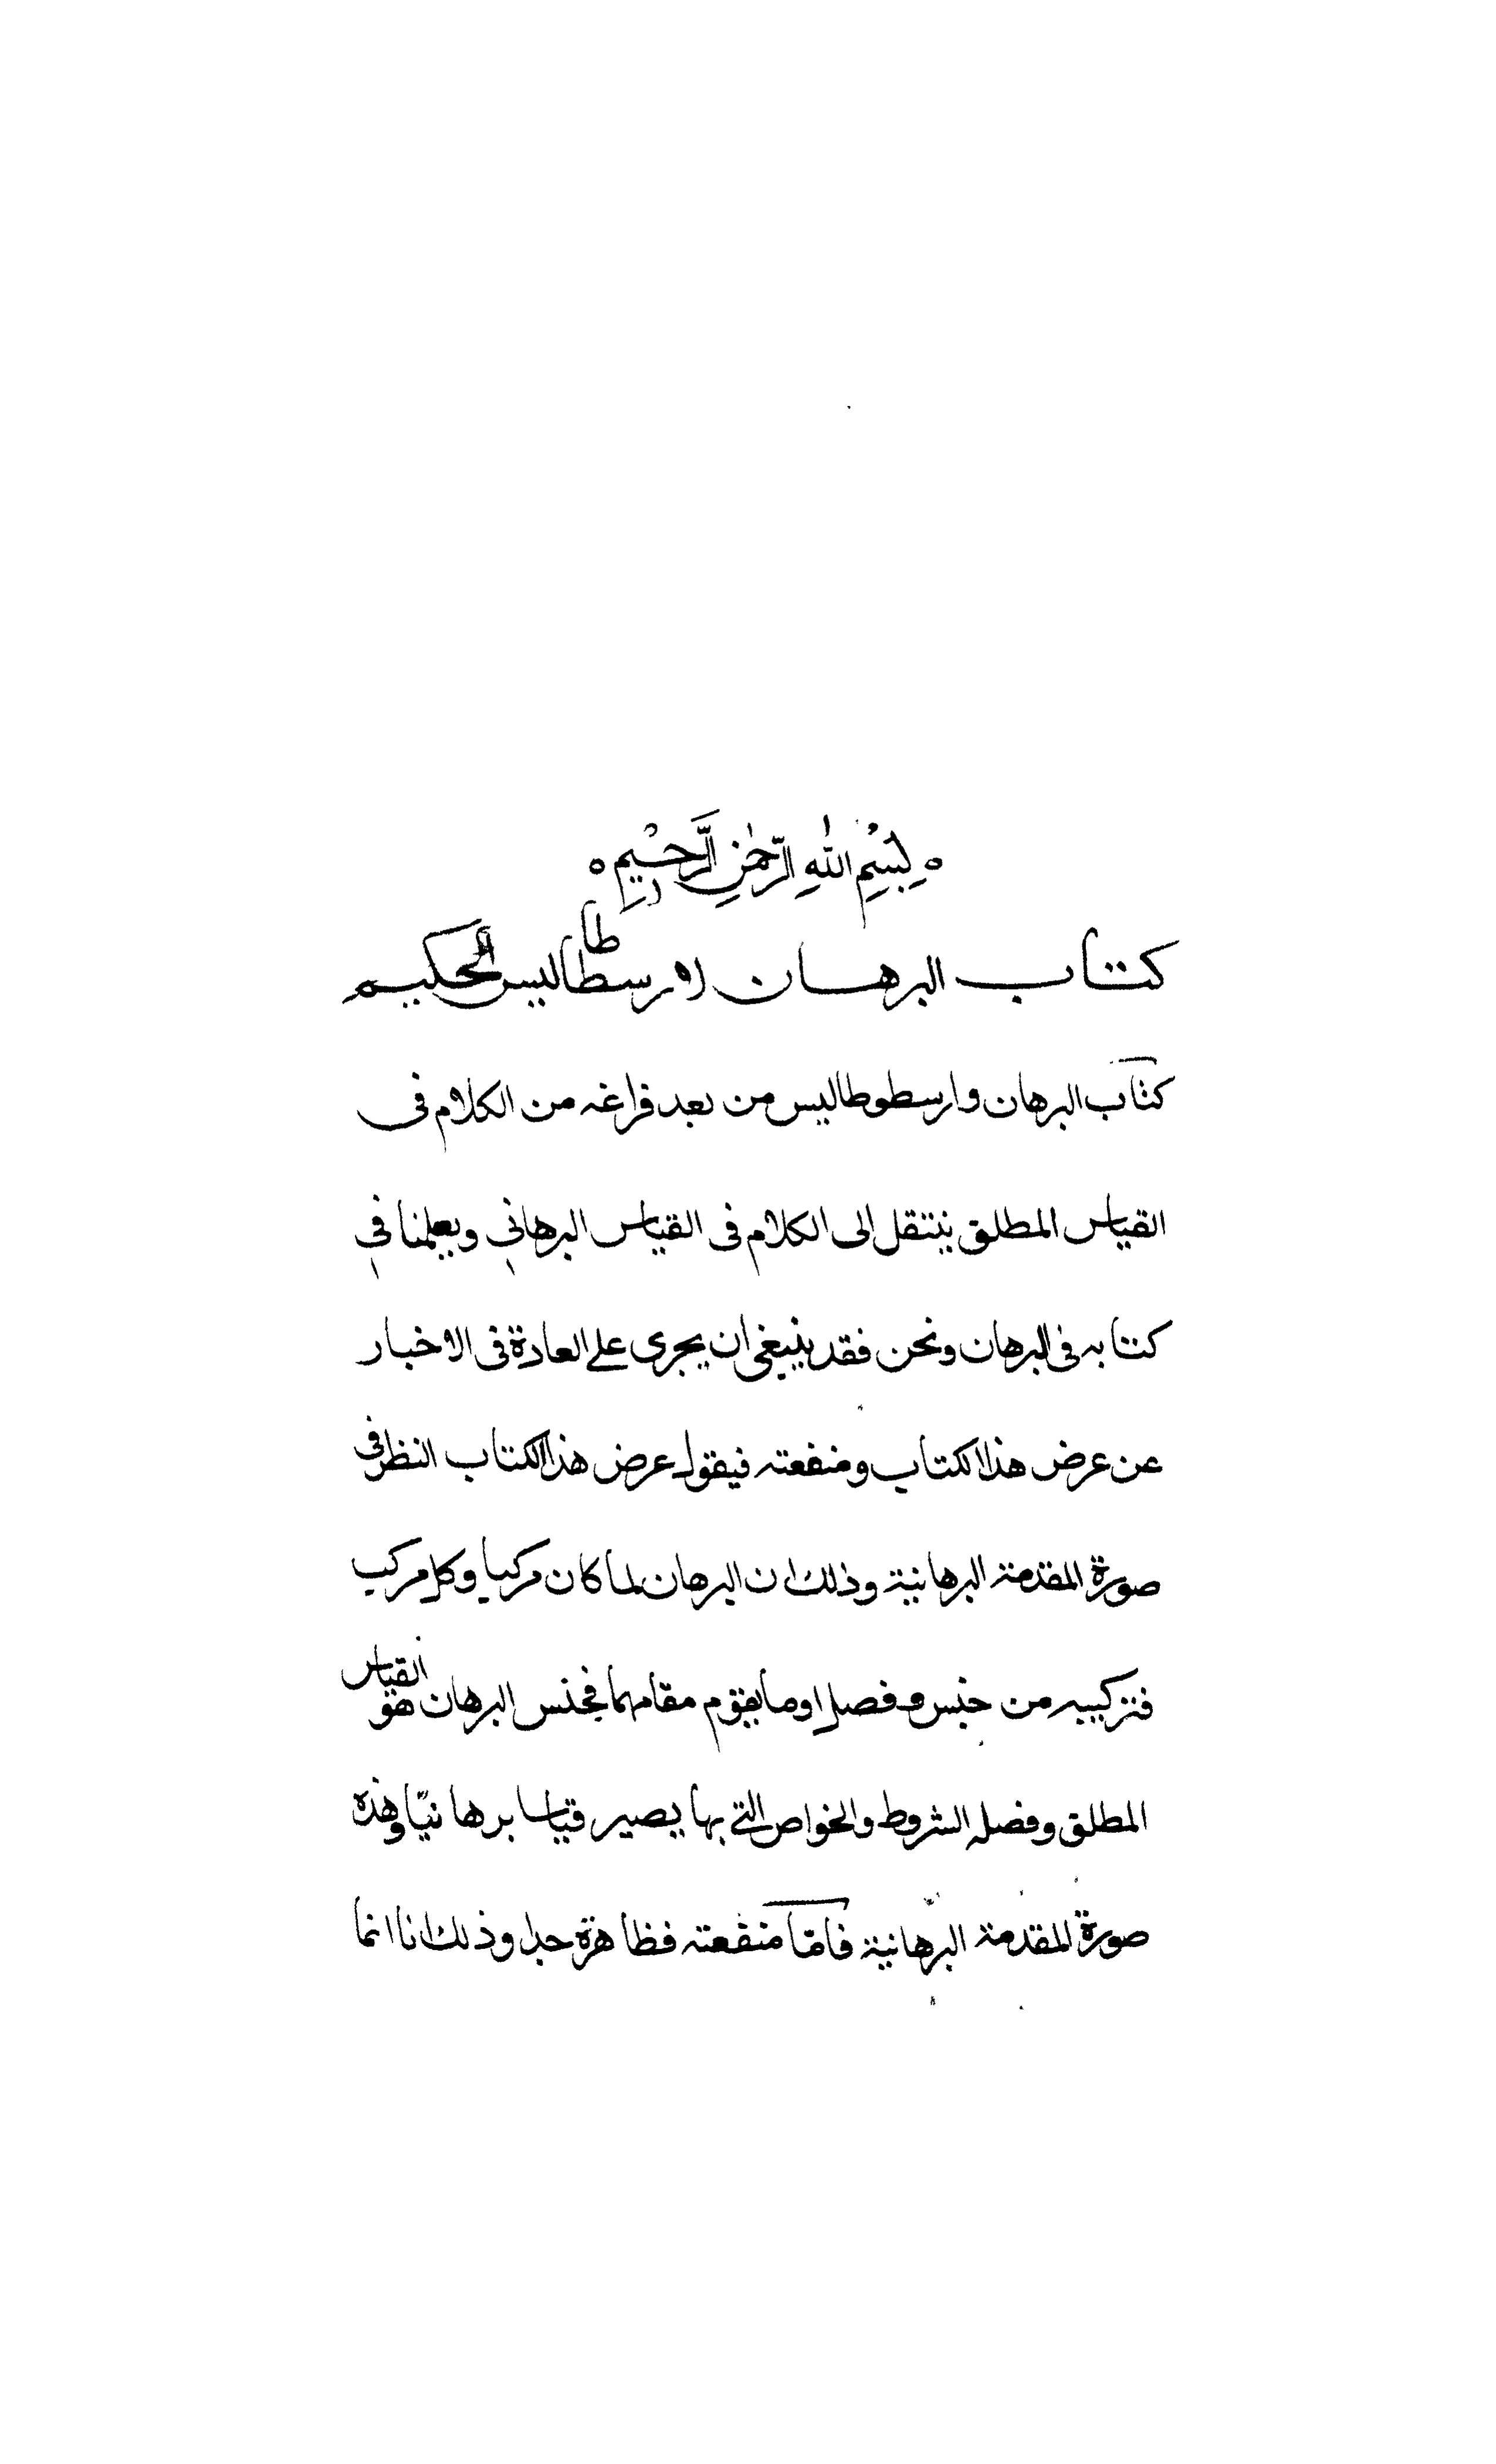 بِسْمِ اللهِ الرَّحْمٰنِ الرَّحِيْمِ
كتاب البرهان لارسطاطاليس الحكيم
كتاب البرهان وارسطوطاليس من بعد فراغه من الكلام فى
القياس المطلق ينتقل الى الكلام فى القياس البرهاني ويعلمنا في
كتابه فى البرهان ونحن فقد ينبغى ان يجرى على العادة فى الاخبار
عن عرض هذا الكتاب ومنفعته فيقول عرض هذا الكتاب النظر فى
صورة المقدمة البرهانية وذلك ان البرهان لما كان مركبا وكل مركب
فتركيبه من جنس وفصل او ما يقوم مقامهما فجنس البرهان هو القياس
المطلق وفصله الشروط والخواص التي بها يصير قياسا برهانيّا وهذه
صورة المقدمة البرهانية فامّا منفعته فظاهرة جدا وذلك انا انما